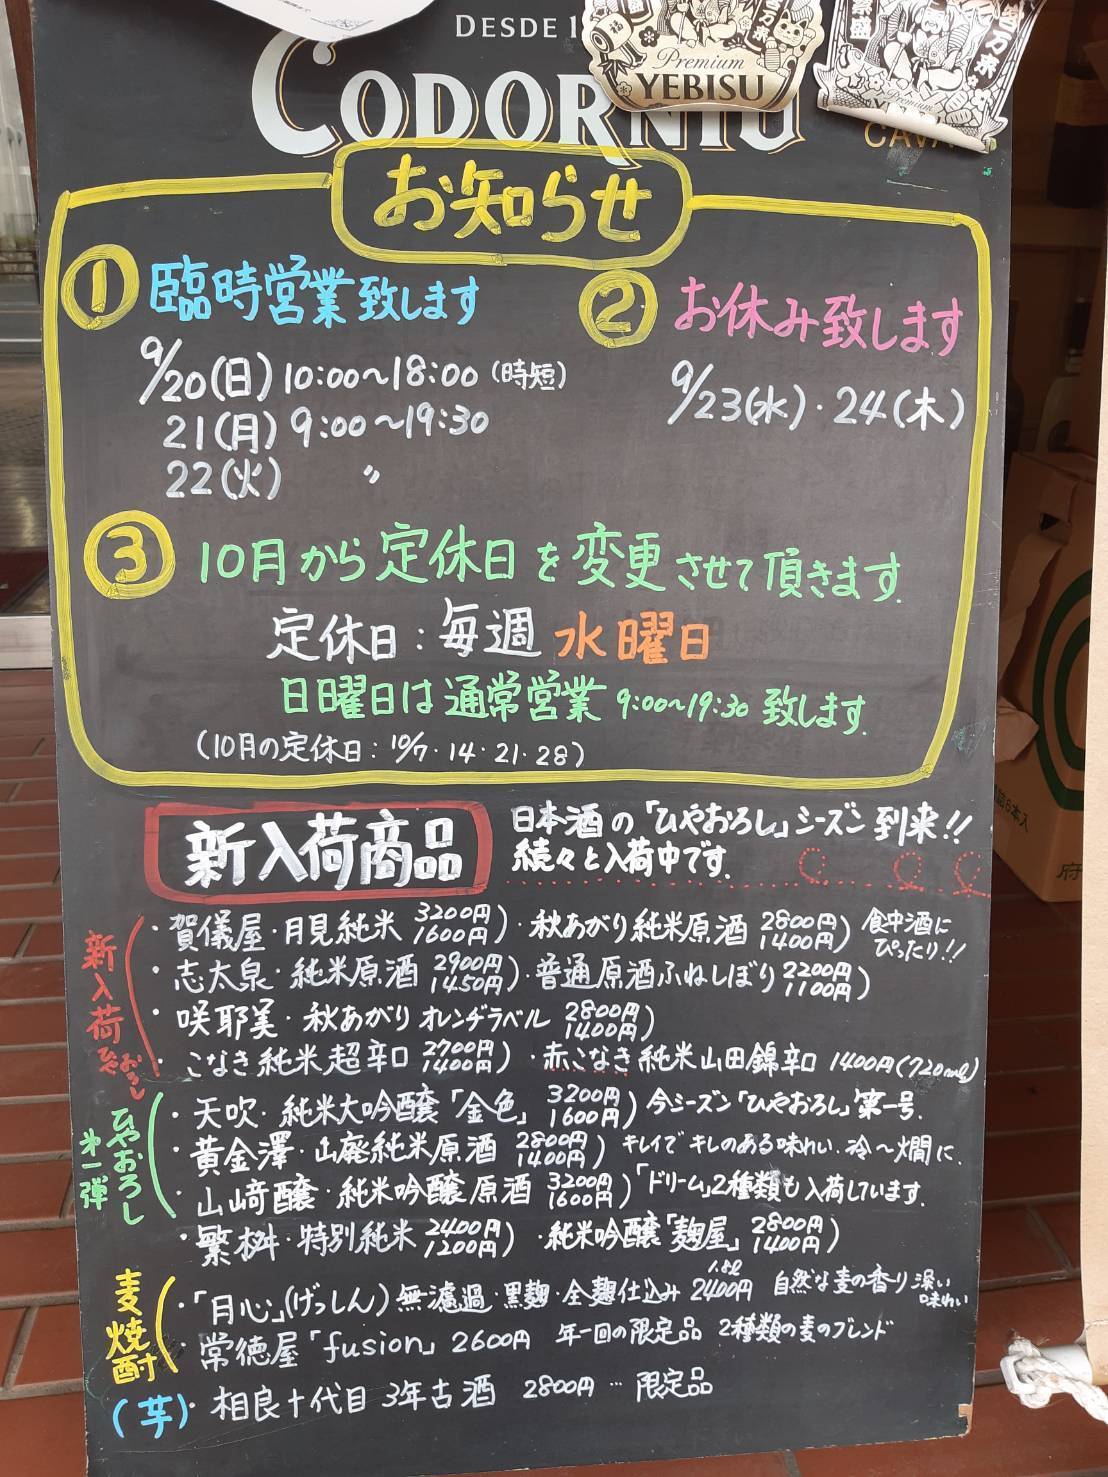 DESDE 1
CODORNIU
CAVA
Premium
YEBISU
お知らせ
① 臨時営業致します
9/20(日) 10:00〜18:00 (時短)
21(月) 9:00〜19:30
22(火) 〃
② お休み致します
9/23(水)・24(木)
③ 10月から定休日を変更させて頂きます
定休日:毎週水曜日
日曜日は通常営業 9:00〜19:30 致します
(10月の定休日:10/7・14・21・28)
新入荷商品
日本酒の「ひやおろし」シーズン到来!!
続々と入荷中です。
新入荷ひやおろし
・賀儀屋・月見純米 3200円 1600円)・秋あがり純米原酒 2800円 1400円) 食中酒にぴったり!!
・志太泉・純米原酒 2900円 1450円)・普通原酒ふねしぼり 2200円 1100円)
・咲耶美・秋あがり オレンヂラベル 2800円 1400円)
・こなき純米超辛口 2700円 1400円)・赤こなき純米山田錦辛口 1400円(720ml)
ひやおろし第一弾
・天吹・純米大吟醸「金色」 3200円 1600円) 今シーズン「ひやおろし」第一号.
・黄金澤・山廃純米原酒 2800円 1400円) キレイで キレのある味わい. 冷〜燗に.
・山﨑醸・純米吟醸原酒 3200円 1600円)「ドリーム」2種類も入荷しています.
・繁桝・特別純米 2400円 1200円)・純米吟醸「麹屋」 2800円 1400円)
麦焼酎
・「月心」(げっしん) 無濾過・黒麹・全麹仕込み 1.8ℓ 2400円 自然な麦の香り深い味わい
・常徳屋「fusion」2600円 年一回の限定品 2種類の麦のブレンド
(芋)・相良十代目 3年古酒 2800円 … 限定品